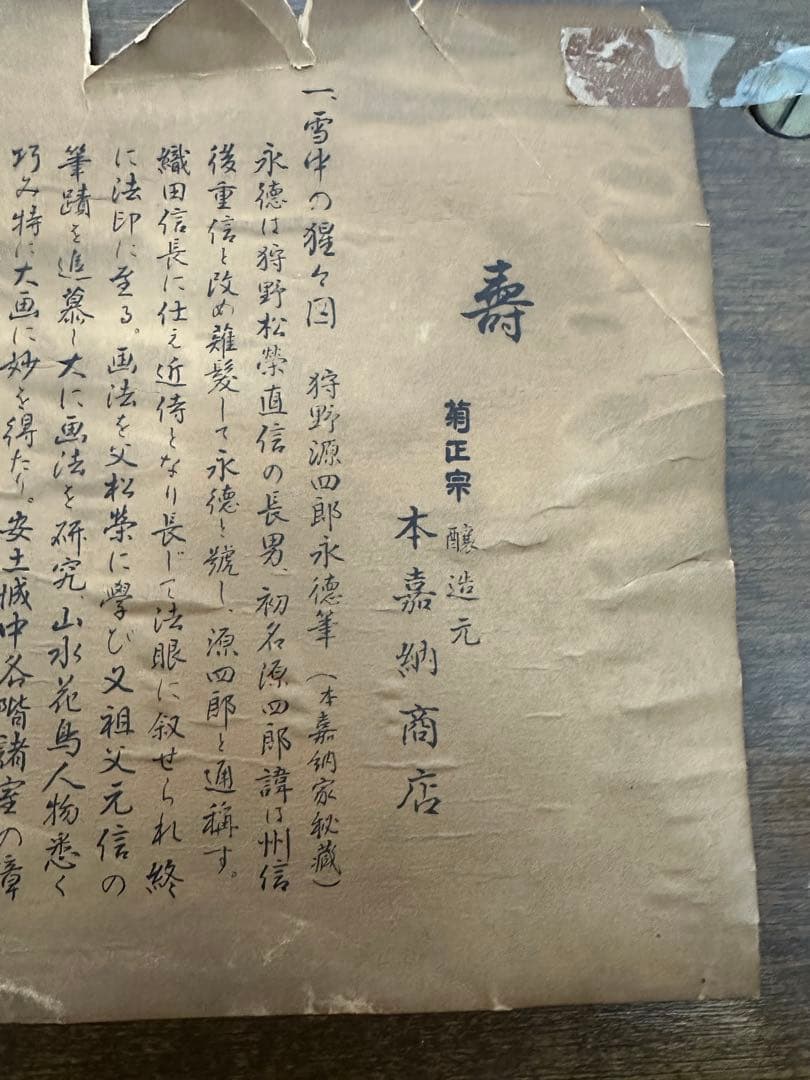 壽
菊正宗 醸造元
本嘉納商店
一、雪中の猩々図 狩野源四郎永徳筆(本嘉納家秘蔵)
永徳は狩野松榮直信の長男、初名源四郎諱は州信
後重信と改め薙髪して永徳と號し、源四郎と通稱す。
織田信長に仕え近侍となり長じて法眼に叙せられ終
に法印に至る。画法を父松榮に學び又祖父元信の
筆蹟を追慕し大に画法を研究、山水花鳥人物悉く
巧み特に大画に妙を得たり。安土城中各階諸室の障